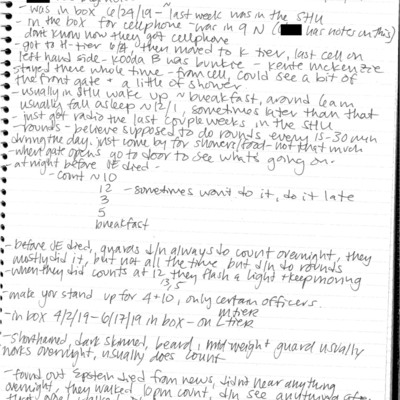 - was in box 6/24/19 - ~ last week was in the SHU
- in the box for cellphone - was in 9 N ( has notes on this)
don't know how they got cellphone
- got to H-tier 6/4, then moved to K tier, last cell on
left hand side - Kooda B was bunkie - Kente McKenzie
- stayed there whole time - from cell, could see a bit of
the front gate + a little of shower
- usually in SHU wake up ~ breakfast, around 6am
usually fall asleep ~ 12/1, sometimes later than that
- just got radio the last couple weeks in the SHU
- rounds - believe supposed to do rounds every 15-30 min
during the day. just come by for showers/food - not that much
- when gate opens go to door to see what's going on.
- at night before JE died -
- count ~10
12 - sometimes won't do it, do it late
3
5
breakfast
- before JE died, guards d/n always do count overnight, they
mostly did it, but not all the time but d/n do rounds
- when they did counts at 12, 3, 5 they flash a light + keep moving
- make you stand up for 4 + 10, only certain officers.
- in box 4/2/19 - 6/17/19 in box - on L tier
M tier
- shorthaired, dark skinned, beard, mid weight guard usually
works overnight, usually does count
- found out Epstein died from news, didn't hear anything
overnight, they walked 10pm count, d/n see anything